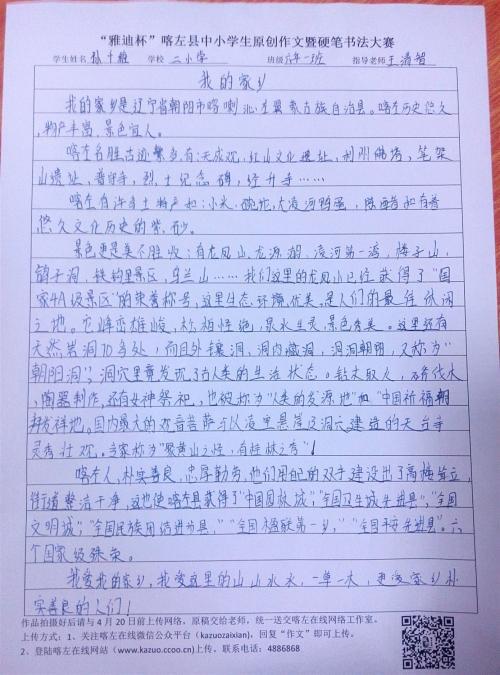 “雅迪杯”喀左县中小学生原创作文暨硬笔书法大赛
学生姓名 孙十雅 学校 二小学 班级 六年一班 指导老师 王清智
我的家乡
我的家乡是辽宁省朝阳市喀喇沁左翼蒙古族自治县。喀左历史悠久,
物产丰富,景色宜人。
喀左名胜古迹繁多,有:天成观,红山文化遗址,利州佛塔,笔架
山遗址,普守寺,烈士纪念碑,经升寺……
喀左有许多土特产如:小米,碗坨,大凌河鸭蛋,陈醋和有着
悠久文化历史的紫砂。
景色更是美不胜收:有龙凤山,龙源湖,凌河第一湾,楼子山,
鸽子洞,铁钩里景区,乌兰山……我们这里的龙凤山已经获得了“国
家4A级景区”的荣誉称号,这里生态环境优美,是人们的最佳休闲
之地。它峰峦雄峻,松柏怪绝,泉水生灵,景色秀美。这里还有
天然岩洞70多处,而且外镶洞,洞内藏洞,洞洞朝阳,又称为“
朝阳洞”,洞穴里竟发现了古人类的生活状态。钻木取火,
陶器制作,还有女神祭祀,也被称为“人类的发源地”和“中国祈福朝
拜发祥地。国内最大的观音菩萨
灵秀壮观,
喀左人,朴实善良,忠厚勤劳,他们用自己的双手建设出了高楼耸立,
街道整洁干净,这也使喀左县获得了“中国园林城”,“全国卫生城先进县”,“全国
文明城”,“全国民族团结进步县,”“全国楹联第一乡,”“全国平安先进县”。六
个国家级殊荣。
我爱我的家乡,我爱这里的山山水水,一草一木,更爱家乡朴
实善良的人们!
作品拍摄好后请与 4 月 20 日前上传网络,原稿交给老师,统一送交喀左在线网络工作室。
上传方式:1、关注喀左在线微信公众平台(kazuozaixian),回复“作文”即可上传。
2、登陆喀左在线网站(www.kazuo.ccoo.cn)上传,联系电话:4886868